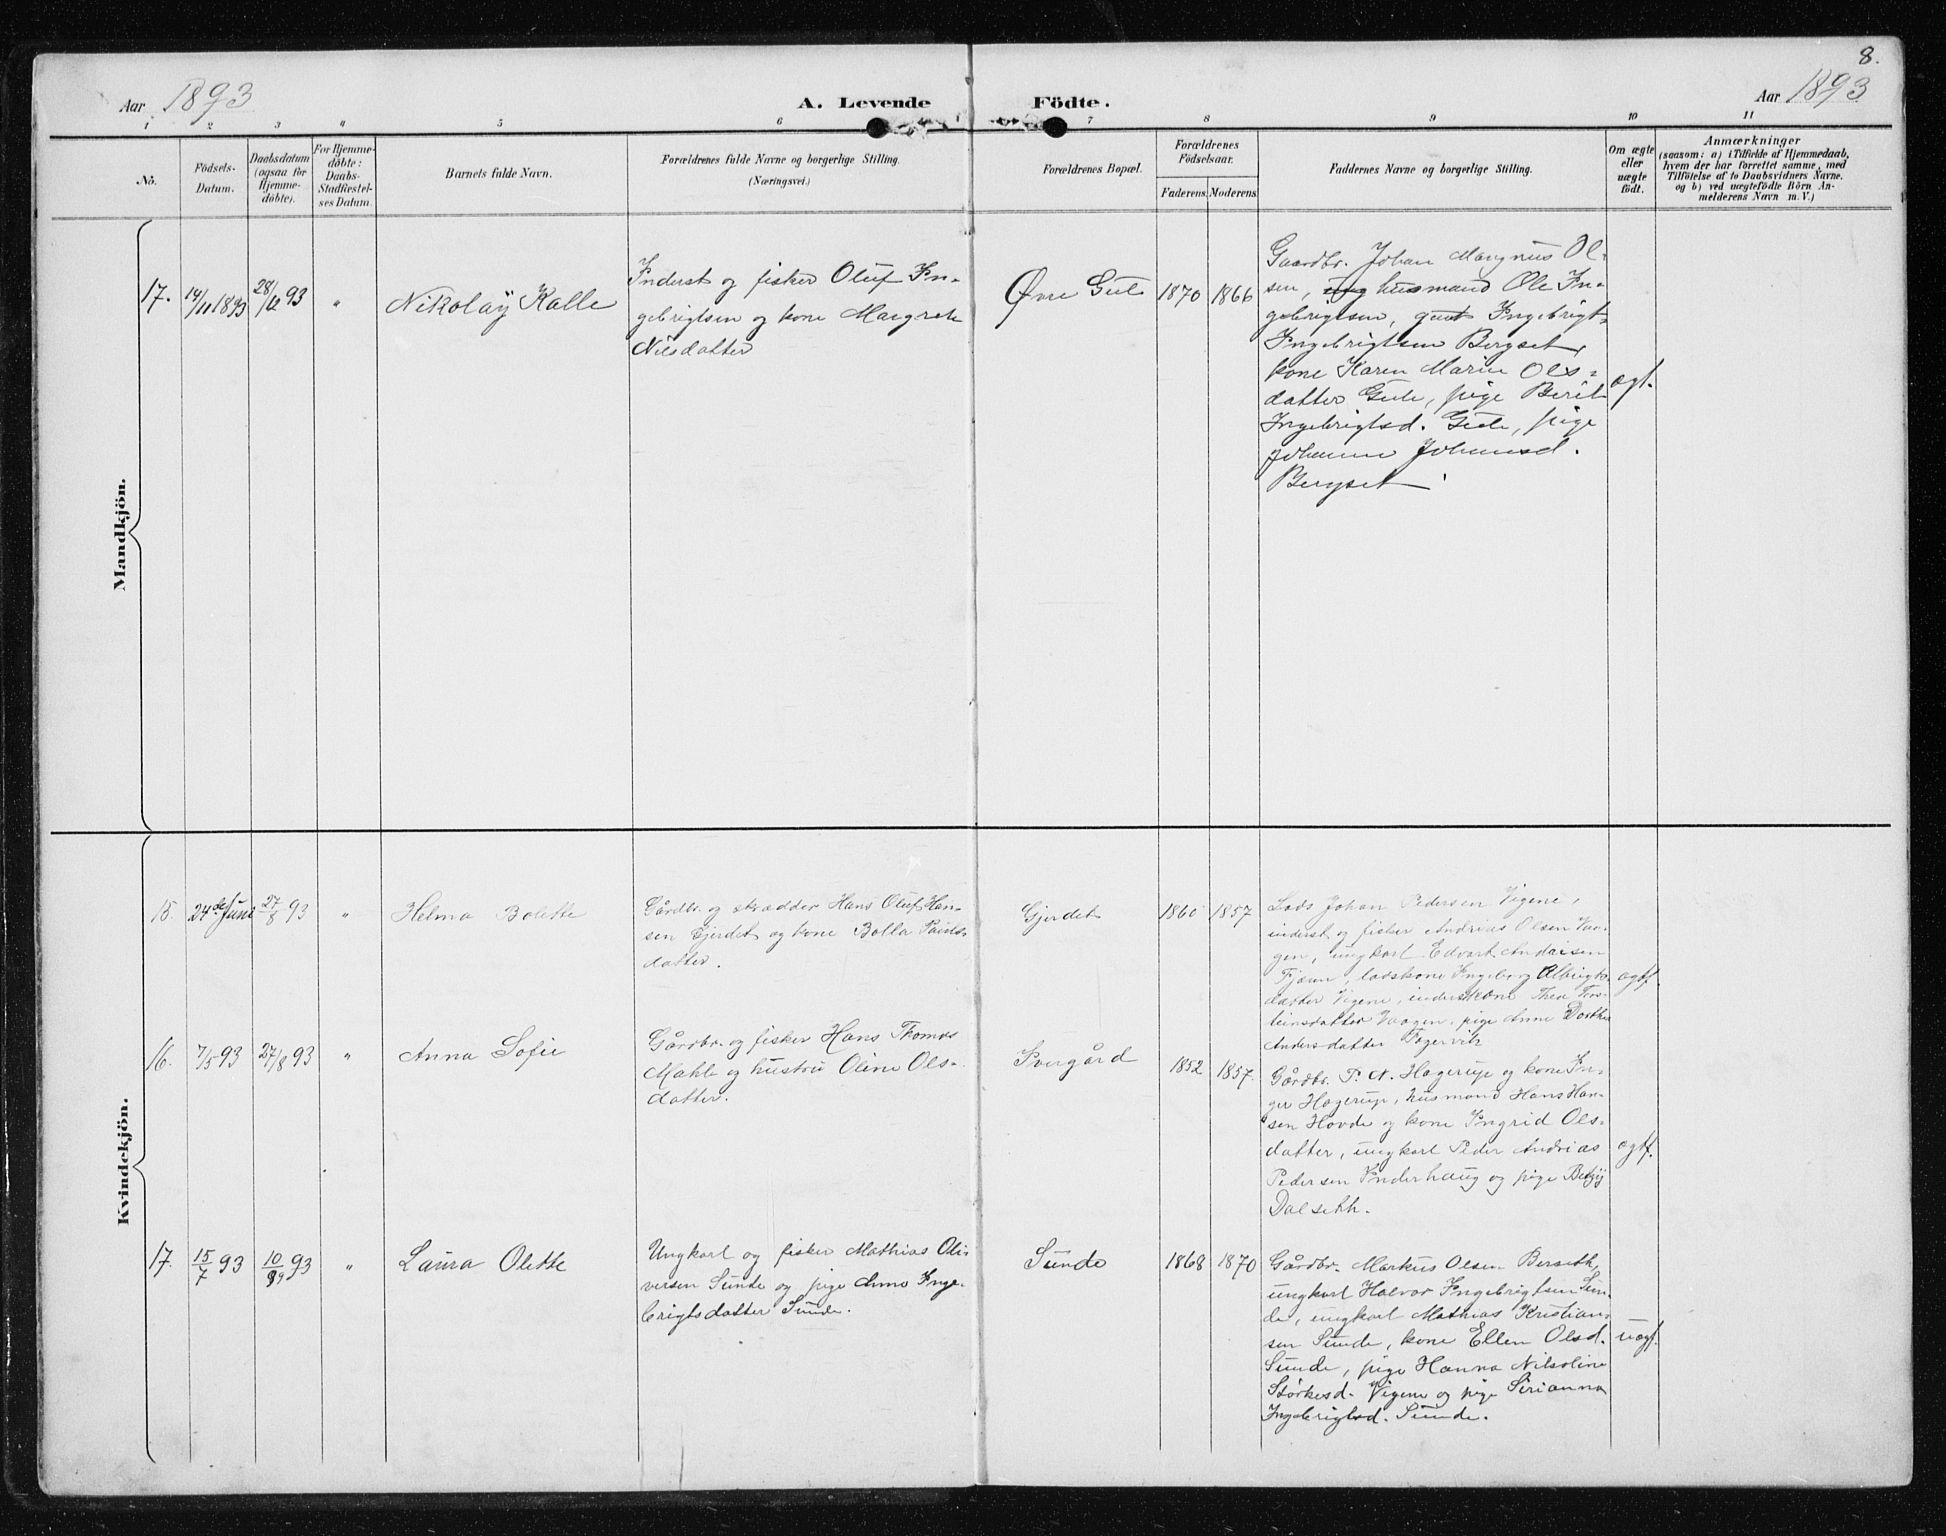 8.
Aar 1893
A. Levende Födte.
Aar 1893
1 2 3 4 5 6 7 8 9 10 11
No.
Födsels-
Datum.
Daabsdatum
(ogsaa for
Hjemme-
döbte).
For Hjemme-
döbte:
Daabs-
Stadfæstel-
ses Datum.
Barnets fulde Navn.
Forældrenes fulde Navne og borgerlige Stilling.
(Næringsvei.)
Forældrenes Bopæl.
Forældrenes
Födselsaar.
Faderens. Moderens.
Faddernes Navne og borgerlige Stilling.
Om ægte
eller
uægte
født.
Anmærkninger
(saasom: a) i Tilfælde af Hjemmedaab,
hvem der har forrettet samme, med
Tilföielse af to Daabsvidners Navne,
og b) ved uægtefödte Börn An-
melderens Navn m. V.)
Mandkjön.
17.
14/11 1893
28/12 93
"
Nikolaÿ Kalle
Inderst og fisker Oluf In-
gebrigtsen og kone Margrete
Nilsdatter
Øvre Gule
1870
1866
Gaardbr. Johan Mangnus Ol-
sen, ung husmand Ole In-
gebrigtsen, gaut Ingebrigt
Ingebrigtsen Bergset,
kone Karen Marie Ols-
datter Gule, pige Berit
Ingebrigtsd. Gule, pige
Johanna Johansd.
Bergset
ægt.
Kvindekjön.
15.
24de Juni
27/8 93
"
Helma Bolette
Gårdbr. og skrædder Hans Oluf Han-
sen Gjerdet og kone Bolla
datter.
Gjerdet
1860
1857
Lods Johan Pedersen Vigene,
inderst og fisker Andrias Olsen Vaa-
gen, ungkarl Edvart Andrisen
lodskone Ingeborg Albrigts-
datter Vigene, inderstkone Thea Tors-
teinsdatter Vaagen, pige Anne Dorthea
Andersdatter Fagervik
ægtf.
16.
7/5 93
27/8 93
"
Anna Sofie
Gårdbr. og fisker Hans Thomas
Mahle og hustru Oline Ols-
datter.
Ivergård
1852
1857.
Gårdbr. P. A. Hagerup og kone In-
ger Hagerup, husmand Hans Han-
sen Hovde og kone Ingrid Ols-
datter, ungkarl Peder Andrias
Pedersen Inderhaug og pige Betzÿ
Dalsethh.
ægtf.
17.
15/7 93
10/9 93
"
Laura Olette
Ungkarl og fisker Mathias Oli-
versen Sunde og pige Anne Inge-
brigtsdatter Sunde.
Sunde
1868
1870
Gårdbr. Markus Olsen Berseth,
ungkarl Halvor Ingebrigtsen Sun-
de, ungkarl Mathias Kristian-
sen Sunde, kone Ellen Olsd.
Sunde, pige Hanna Nilsoline
Størkesd. Vigene og pige Serianna
Ingebrigtsd. Sunde.
uægt.